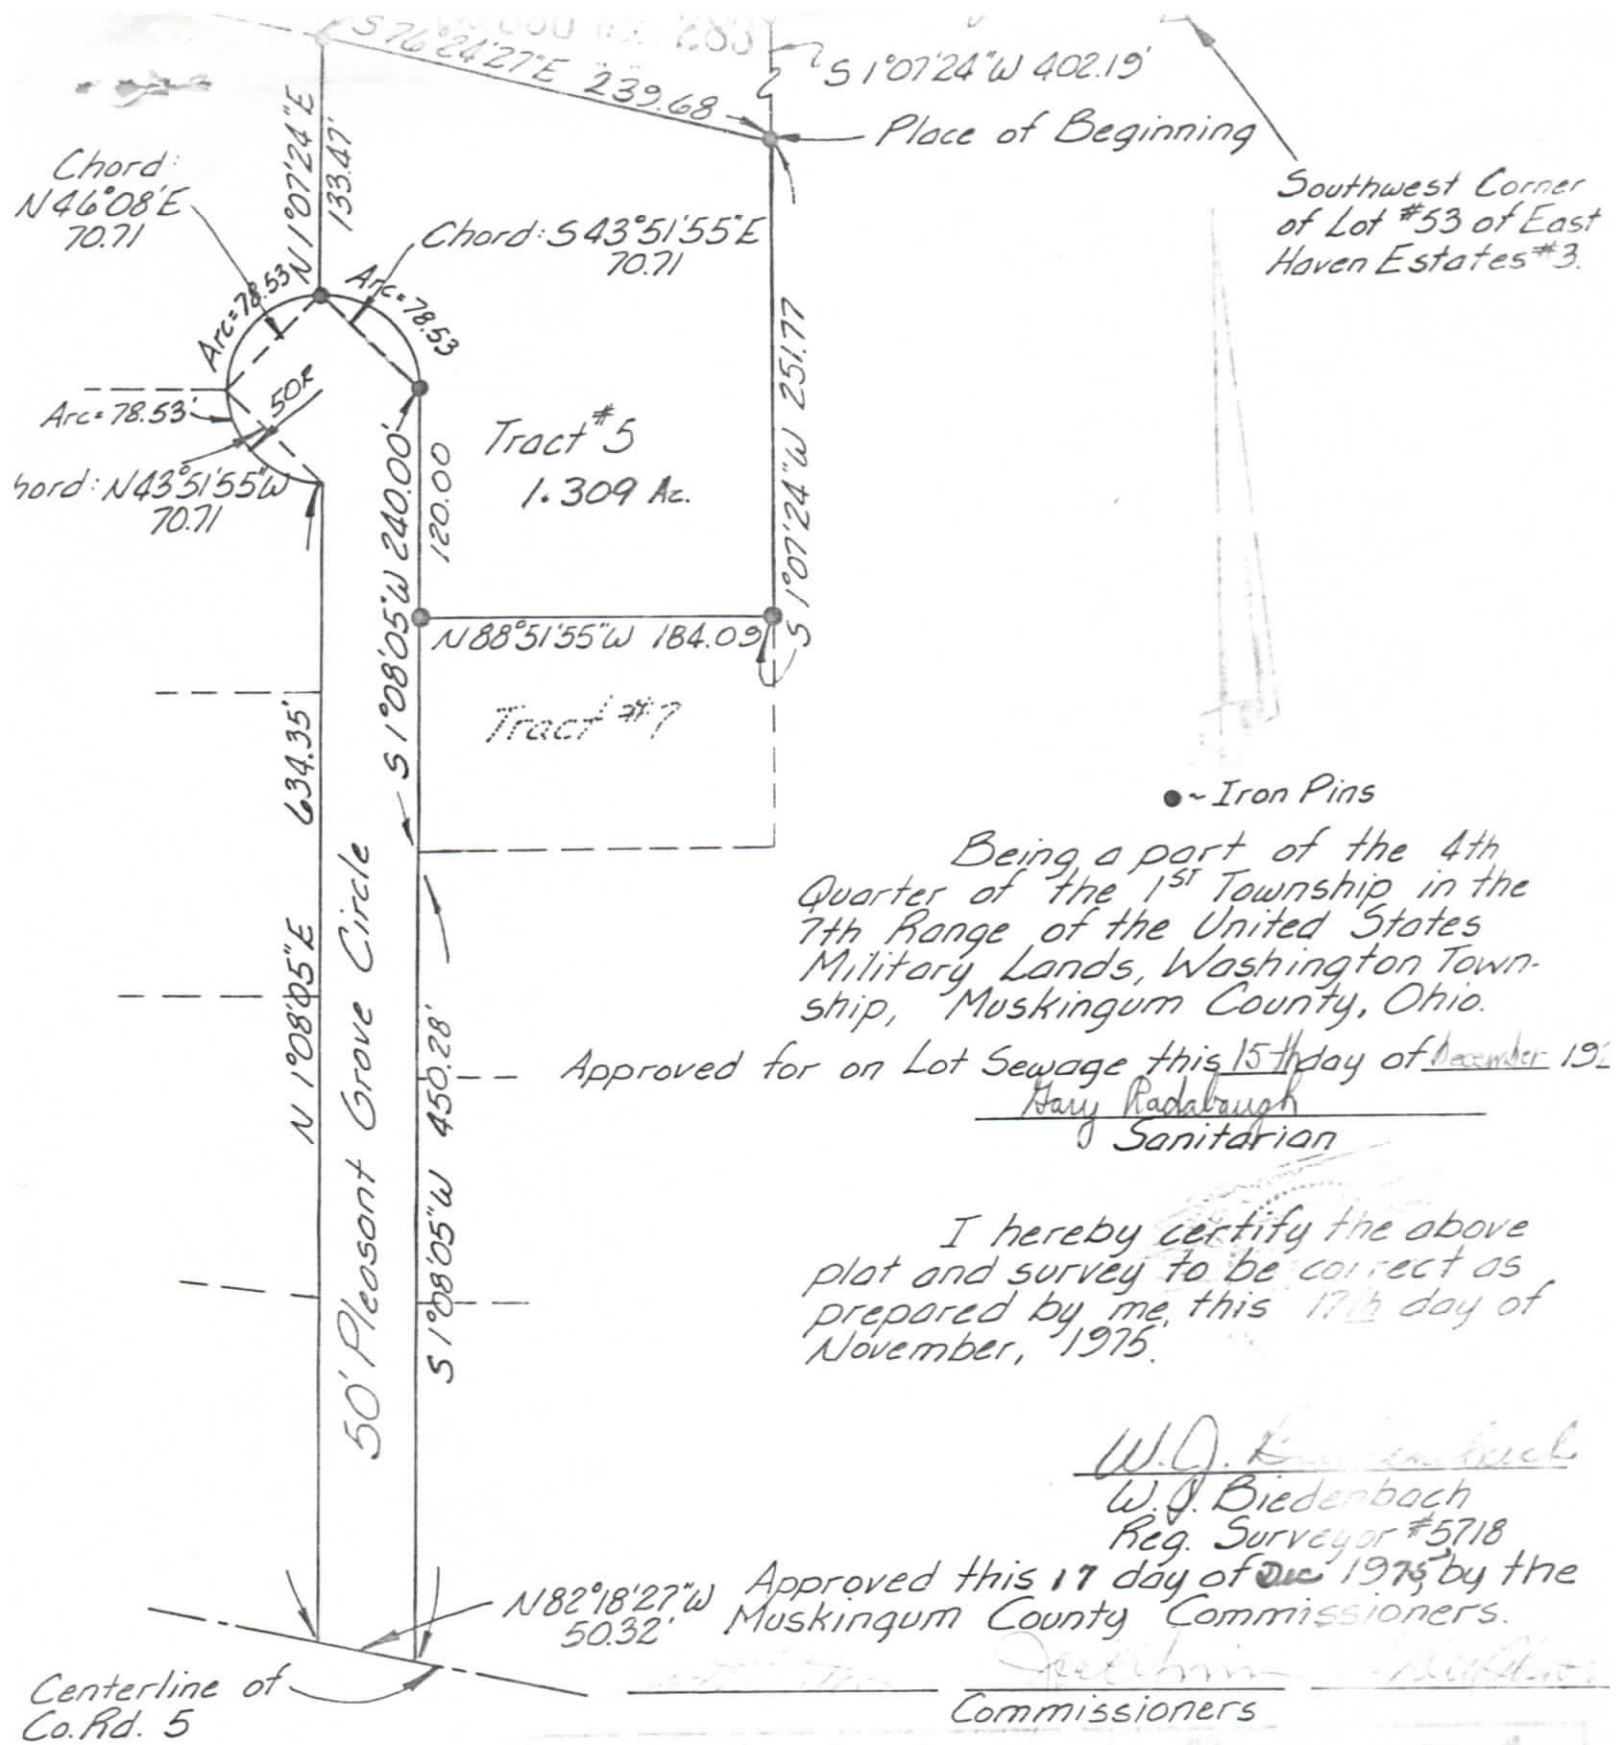 S 76°24'27"E 239.68
S 1°07'24"W 402.19'
Place of Beginning
Southwest Corner
of Lot #53 of East
Haven Estates #3.
N 1°07'24"E
133.47'
Chord:
N 46°08'E
70.71
Chord: S 43°51'55"E
70.71
Arc=78.53
Arc=78.53
50R
Arc=78.53'
hord: N 43°51'55"W
70.71
Tract #5
1.309 Ac.
S 1°07'24"W 251.77
S 1°08'05"W 240.00'
120.00
N 88°51'55"W 184.09
Tract #7
N 1°08'05"E 634.35'
50' Pleasant Grove Circle
S 1°08'05"W 450.28'
●~ Iron Pins
Being a part of the 4th
Quarter of the 1ST Township in the
7th Range of the United States
Military Lands, Washington Town-
ship, Muskingum County, Ohio.
Approved for on Lot Sewage this 15th day of December 19
Gary Radabaugh
Sanitarian
I hereby certify the above
plat and survey to be correct as
prepared by me, this 17th day of
November, 1975.
W.J.
W.J. Biedenbach
Reg. Surveyor #5718
Approved this 17 day of Dec 1975, by the
Muskingum County Commissioners.
Commissioners
N 82°18'27"W
50.32'
Centerline of
Co. Rd. 5